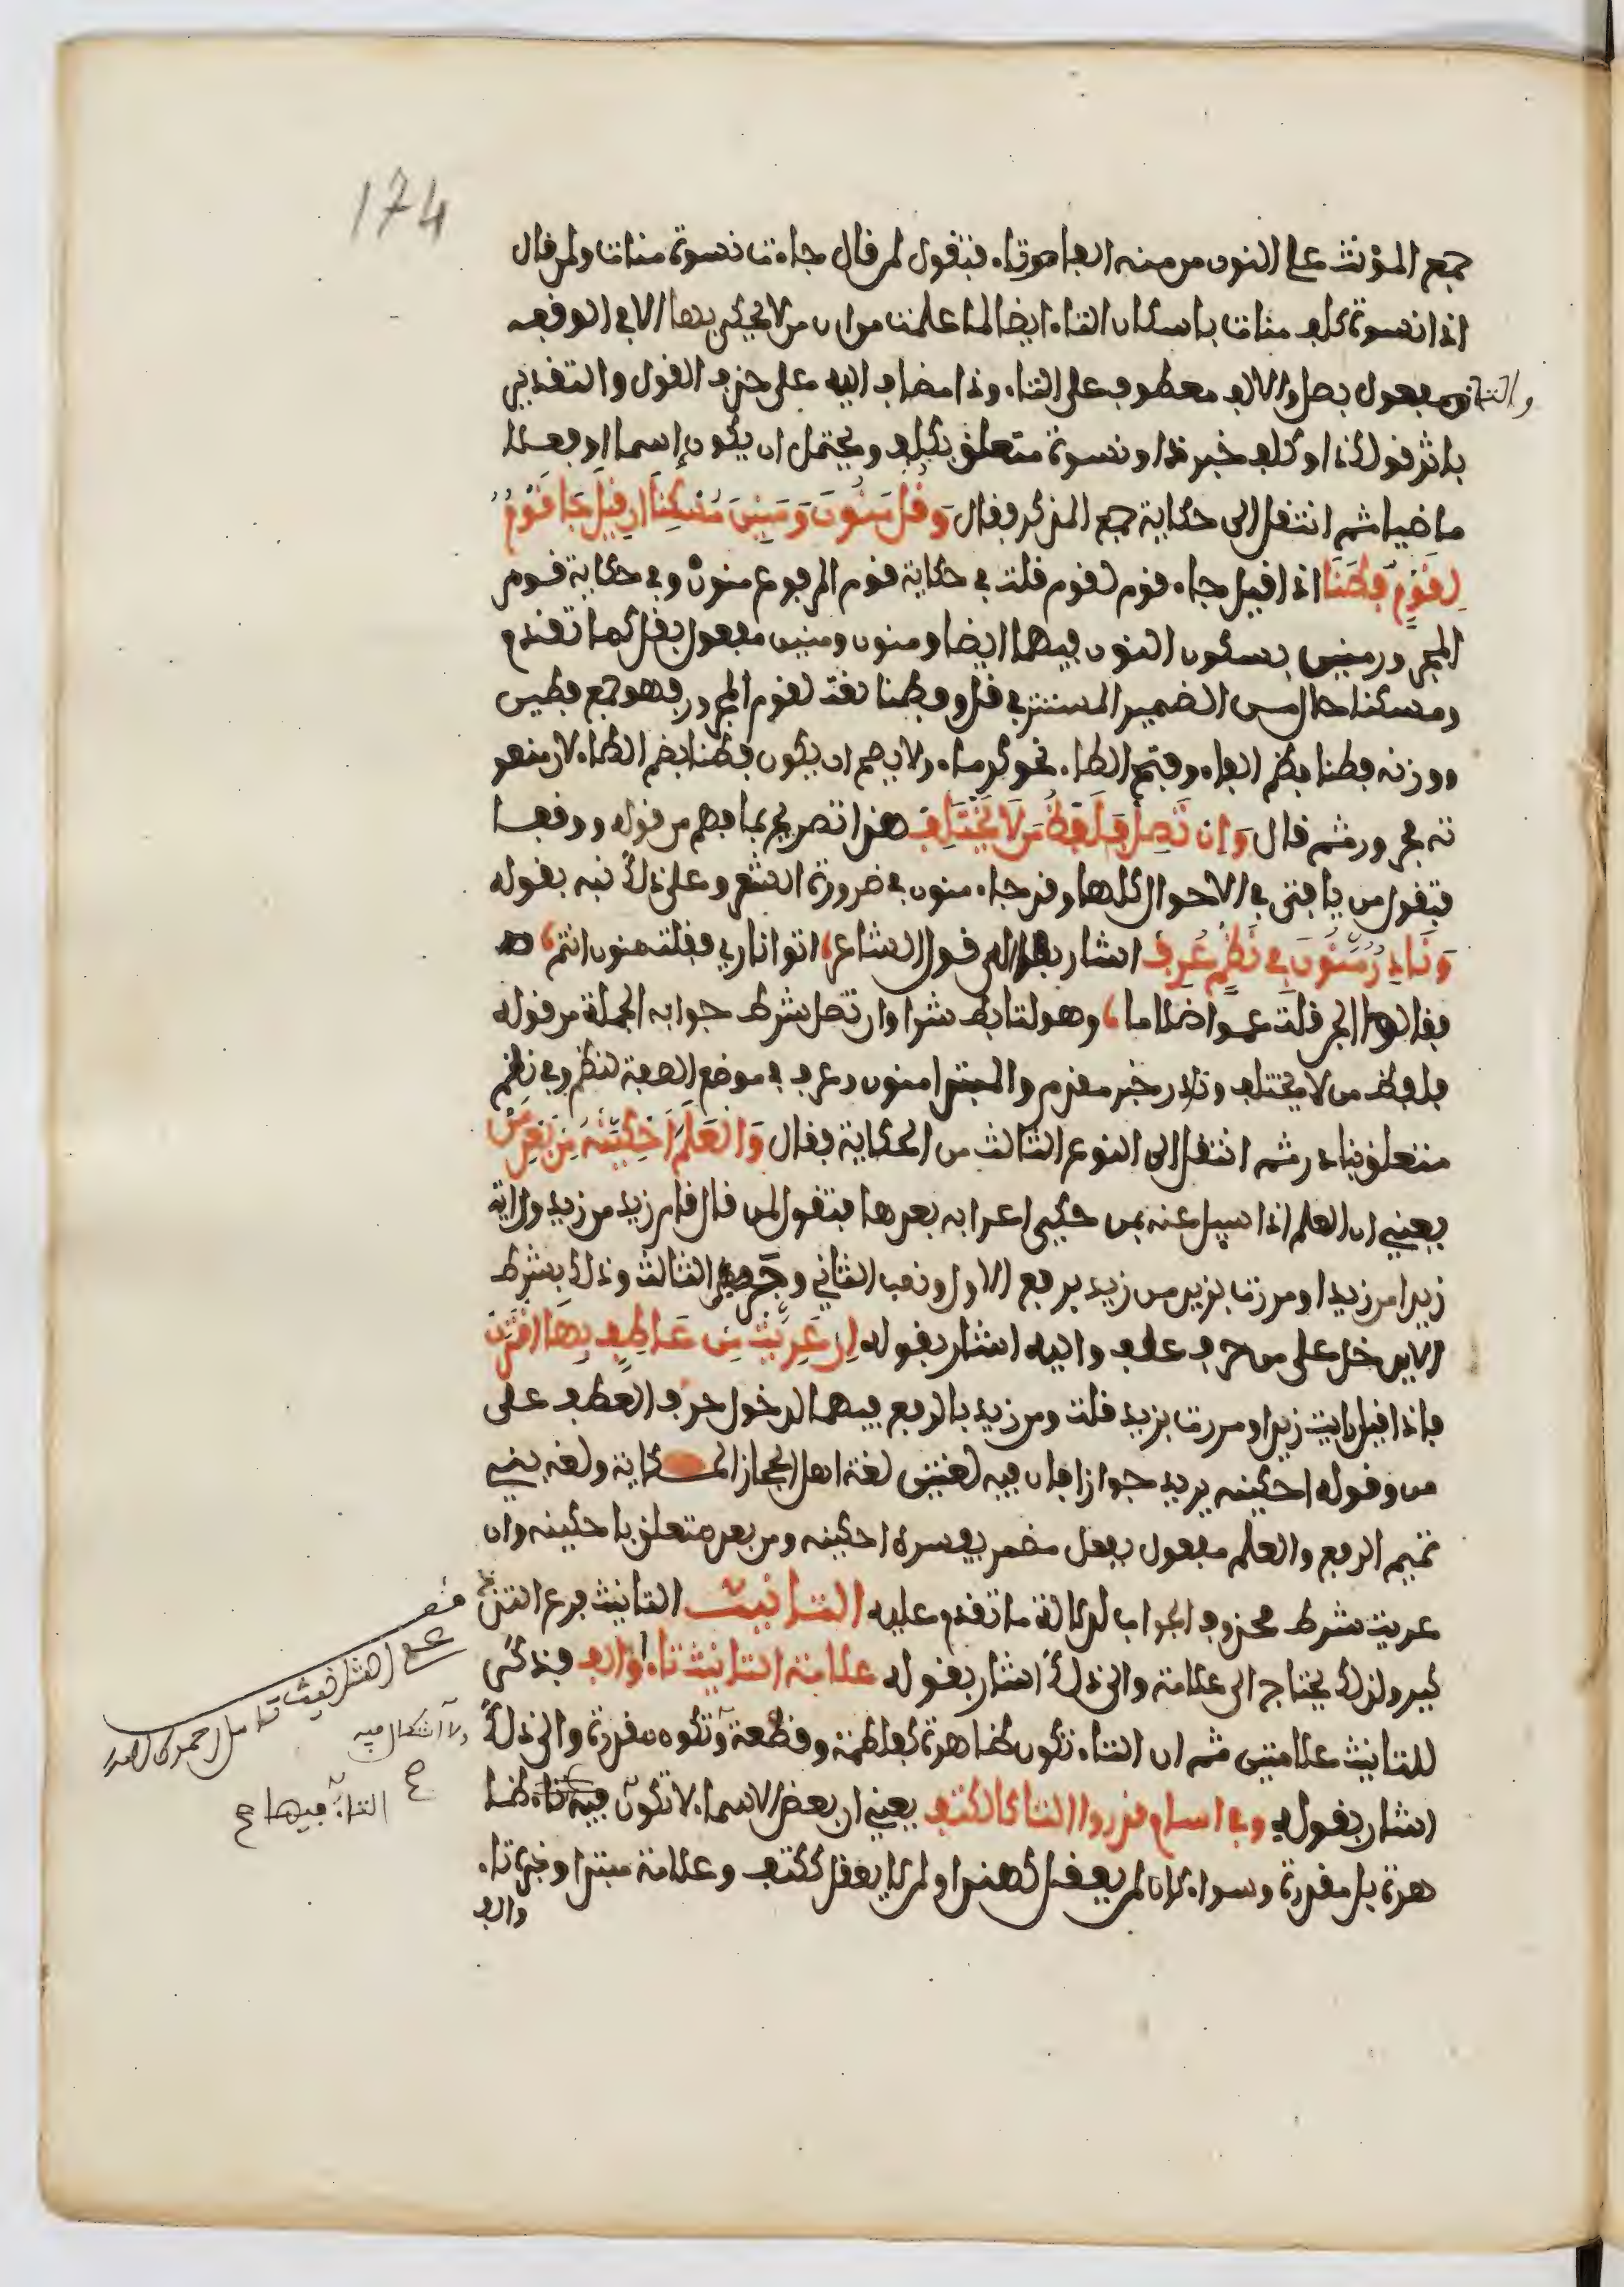 174
جمع المؤنث على النون من منه الفا وتاء فتقول لمن قال جاءت نسوة منات ولمن قال
اذا نسوة كلف منات باسكان التاء ايضا لما علمت من ان من لا يحكى بها الا في الوقف
والتا مفعول بصل والالف معطوف على التاء وذا مضاف اليه على حذف القول والتقدير
باثر قولك ذا وكلف خبر ذا ونسوة متعلق بكلف ويحتمل ان يكون اسما او فعلا
ماضيا ثم انتقل الى حكاية جمع المذكر فقال وَقُلْ مَنُونَ وَمَنِينَ مُسْكِنَا ان قِيلَ جَا قَوْمٌ
لِقَوْمٍ فُطَنَا اذا قيل جاء قوم لقوم قلت في حكاية قوم المرفوع منون وفي حكاية قوم
المجرور منين بسكون النون فيهما ايضا ومنون ومنين مفعول بقل كما تقدم
ومسكنا حال من الضمير المستتر في قل وفطنا نعت لقوم المجرور فهو جمع فطين
ووزنه فطنا بضم الفاء وفتح الطاء نحو كرماء ولا يصح ان يكون فطنا بضم الطاء لان منعو
ته مجرور ثم قال وَان تَصِلْ فَلَفْظُ مَن لَا يَخْتَلِفْ هذا تصريح بما فهم من قوله ووقفا
فتقول من يا فتى في الاحوال كلها وقد جاء منون في ضرورة الشعر وعلى ذلك نبه بقوله
وَنَادِرٌ مَنُونَ فِي نَظْمٍ عُرِفْ اشار به الى قول الشاعر اتوا ناري فقلت منون انتم
فقالوا الجن قلت عموا ظلاما وهو لتابط شرا وان تصل شرط جوابه الجملة من قوله
فلفظ من لا يختلف ونادر خبر مقدم والمبتدا منون وعرف في موضع الصفة لنظم وفي نظم
متعلق بنادر ثم انتقل الى النوع الثالث من الحكاية فقال وَالعَلَمَ احْكِيَنَّهُ مِن بَعْدِ مَنْ
يعني ان العلم اذا سيل عنه بمن حكي اعرابه بعدها فتقول لمن قال قام زيد من زيد ورايت
زيدا من زيدا ومررت بزيد من زيد برفع الاول ونصب الثاني وجر الثالث وذلك بشرط
الا يدخل على من حرف عطف واليه اشار بقوله اِن عَرِيَتْ مِن عَاطِفٍ بِهَا اقْتَرَنْ
فاذا قيل رايت زيدا ومررت بزيد قلت ومن زيد بالرفع فيهما لدخول حرف العطف على
من وقوله احكينه يريد جوازا فان فيه لغتين لغة اهل الحجاز الحكاية ولغة بني
تميم الرفع والعلم مفعول بفعل مضمر يفسره احكينه ومن بعد متعلق باحكينه وان
عريت شرط محذوف الجواب لدلالة ما تقدم عليه التانيث التانيث فرع التذ
كير ولذلك يحتاج الى علامة والى ذلك اشار بقوله علامة التانيث تاء او الف فذكر
للتانيث علامتين ثم ان التاء تكون ظاهرة كفاطمة وقطعة وتكون مقدرة والى ذلك
اشار بقوله وفي اسام قدروا التا كالكتف يعني ان بعض الاسماء لا تكون فيه تاء ظا
هرة بل مقدرة وسواء كان لمن يعقل كهند او لما لا يعقل ككتف وعلامة مبتدا وخبره تاء
والف
ولا اشكال فيه
التاء فيها